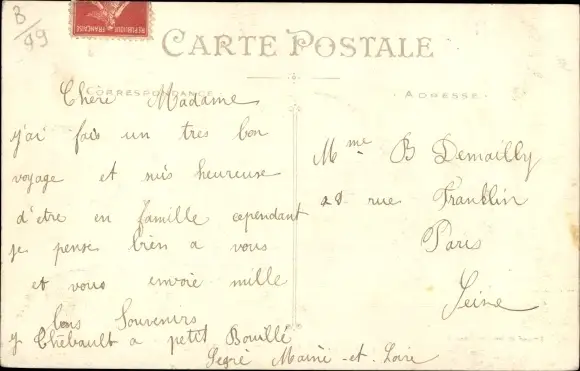 B/99
REPUBLIQUE FRANÇAISE
CARTE POSTALE
CORRESPONDANCE
Chère Madame
j'ai fais un tres bon
voyage et suis heureuse
d'etre en famille cependant
je pense bien a vous
et vous envoie mille
bons Souvenirs
y Thébault a petit Bouillé
Segré Maine-et-Loire
ADRESSE
Mme B Demailly
28 rue Franklin
Paris
Seine